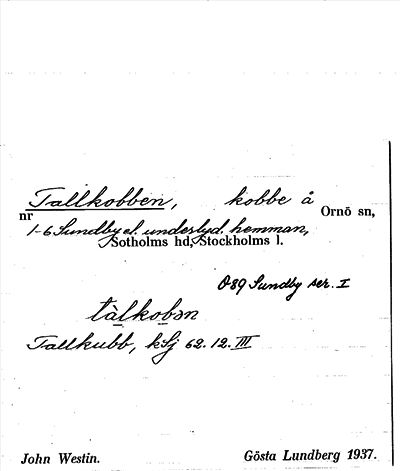 Tallkobben, kobbe å Ornö sn,
nr 1-6 Sundby el. underlyd. hemman,
Sotholms hd, Stockholms l.
Ö89 Sundby ser. I
tàlkobən
Tallkubb, kSj 62. 12. III
John Westin. Gösta Lundberg 1937.